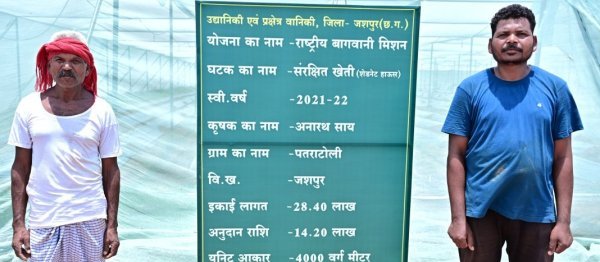 उद्यानिकी एवं प्रक्षेत्र वानिकी, जिला- जशपुर(छ.ग.)
योजना का नाम -राष्ट्रीय बागवानी मिशन
घटक का नाम -संरक्षित खेती (शेडनेट हाऊस)
स्वी.वर्ष -2021-22
कृषक का नाम -अनारथ साय
ग्राम का नाम -पतराटोली
वि.ख. -जशपुर
इकाई लागत -28.40 लाख
अनुदान राशि -14.20 लाख
यूनिट आकार -4000 वर्ग मीटर